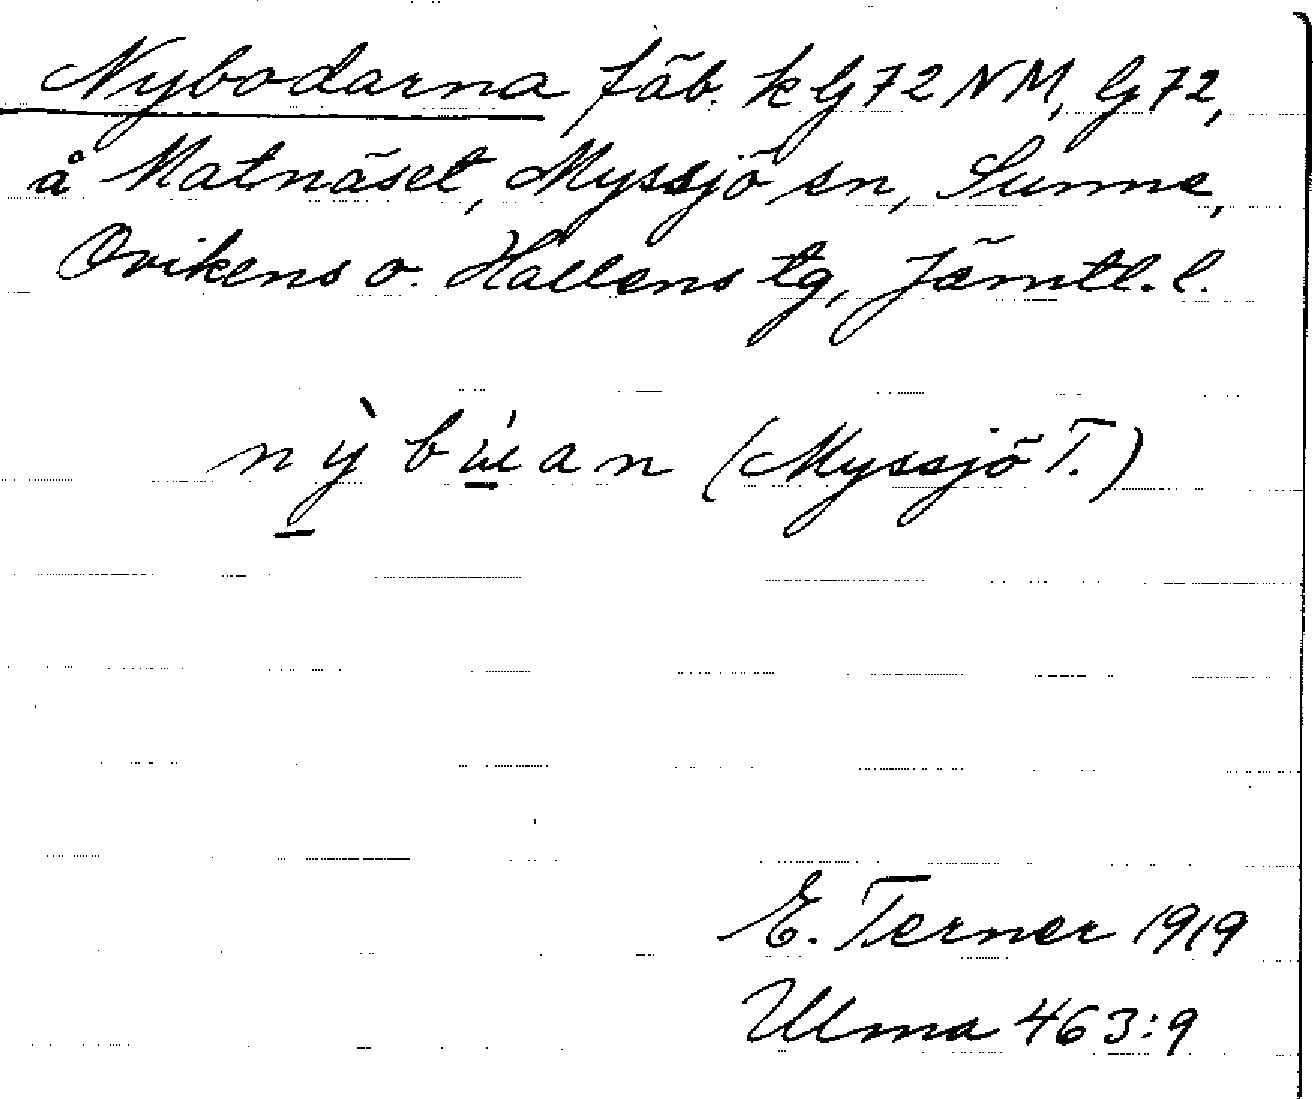 Nybodarna fäb. k G72 NM, G72,
å Matnäset, Myssjö sn, Sunne,
Ovikens o. Hallens tg, Jämtl. l.
(Myssjö T.)
E. Terner 1919
Ulma 463:9